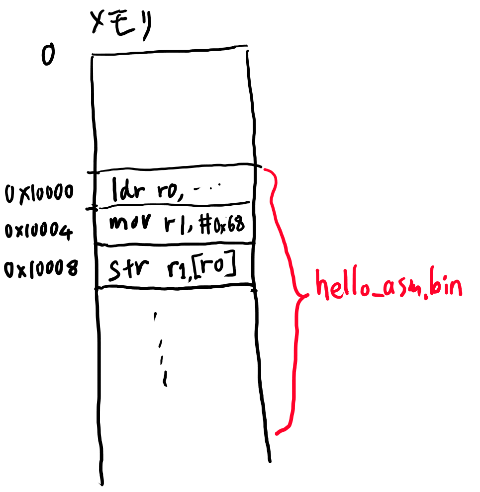 メモリ
0
0x10000 ldr r0, ...
0x10004 mov r1, #0x68
0x10008 str r1,[r0]
hello_asm.bin